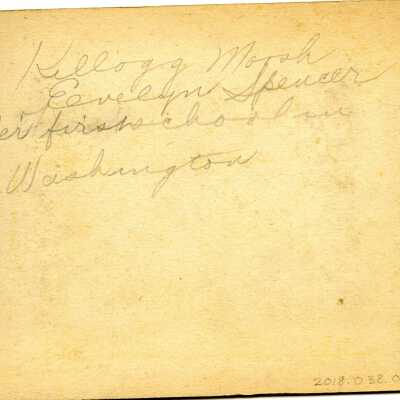 Killogg Moosh
Eevelyn Spencer
er first school in
Washington
2018.038.0